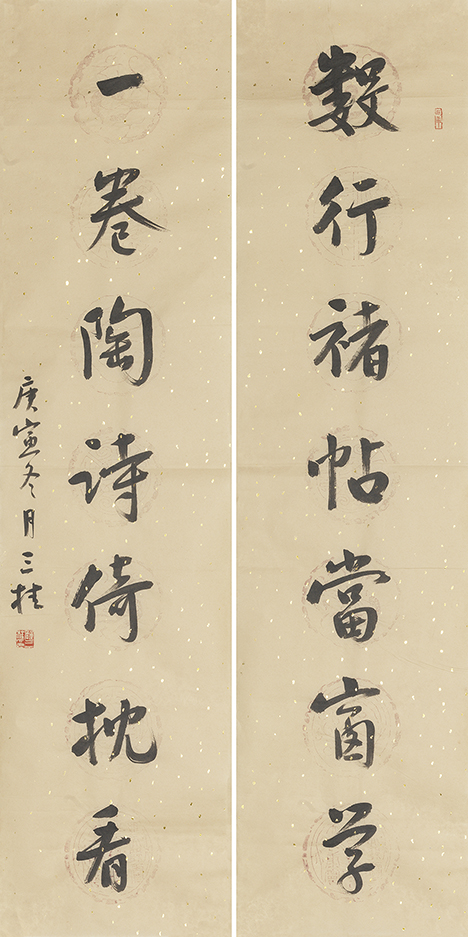 数行褚帖當窗学
一卷陶诗倚枕看
庚寅冬月三桂